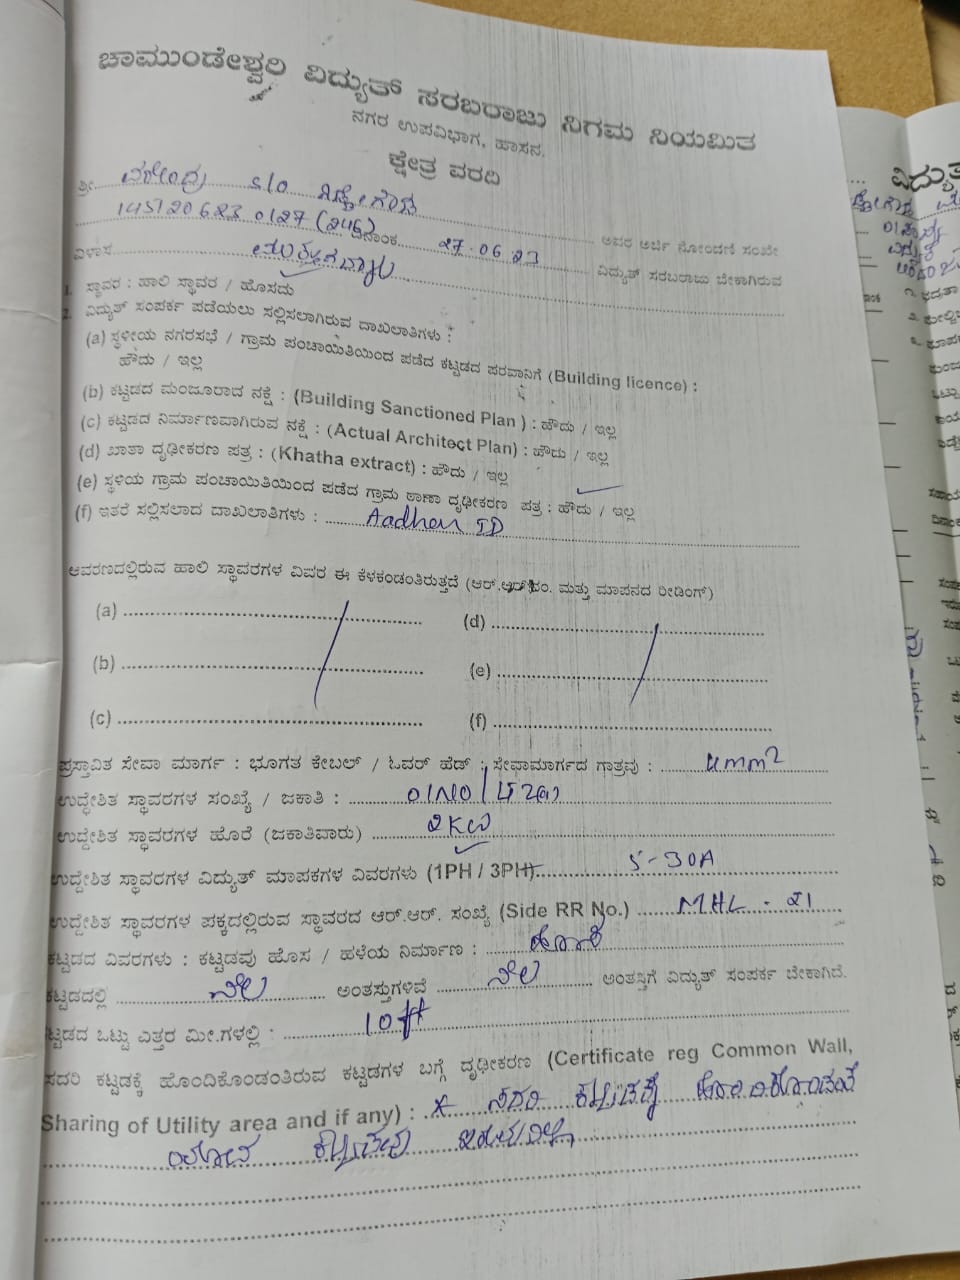 ಚಾಮುಂಡೇಶ್ವರಿ ವಿದ್ಯುತ್ ಸರಬರಾಜು ನಿಗಮ ನಿಯಮಿತ
ನಗರ ಉಪವಿಭಾಗ, ಹಾಸನ.
ಕ್ಷೇತ್ರ ವರದಿ
ಶ್ರೀ. S/o ಅವರ ಅರ್ಜಿ ನೋಂದಣಿ ಸಂಖೇ
145120623 0127 (246) ದಿನಾಂಕ 27.06.23 ವಿದ್ಯುತ್ ಸರಬರಾಜು ಬೇಕಾಗಿರುವ
ವಿಳಾಸ
1. ಸ್ಥಾವರ : ಹಾಲಿ ಸ್ಥಾವರ / ಹೊಸದು
2. ವಿದ್ಯುತ್ ಸಂಪರ್ಕ ಪಡೆಯಲು ಸಲ್ಲಿಸಲಾಗಿರುವ ದಾಖಲಾತಿಗಳು :
(a) ಸ್ಥಳೀಯ ನಗರಸಭೆ / ಗ್ರಾಮ ಪಂಚಾಯಿತಿಯಿಂದ ಪಡೆದ ಕಟ್ಟಡದ ಪರವಾನಿಗೆ (Building licence) :
ಹೌದು / ಇಲ್ಲ
(b) ಕಟ್ಟಡದ ಮಂಜೂರಾದ ನಕ್ಷೆ : (Building Sanctioned Plan ) : ಹೌದು / ಇಲ್ಲ
(c) ಕಟ್ಟಡದ ನಿರ್ಮಾಣವಾಗಿರುವ ನಕ್ಷೆ : (Actual Architect Plan) : ಹೌದು / ಇಲ್ಲ
(d) ಖಾತಾ ದೃಢೀಕರಣ ಪತ್ರ : (Khatha extract) : ಹೌದು / ಇಲ್ಲ
(e) ಸ್ಥಳಿಯ ಗ್ರಾಮ ಪಂಚಾಯಿತಿಯಿಂದ ಪಡೆದ ಗ್ರಾಮ ಠಾಣಾ ದೃಢೀಕರಣ ಪತ್ರ : ಹೌದು / ಇಲ್ಲ
(f) ಇತರೆ ಸಲ್ಲಿಸಲಾದ ದಾಖಲಾತಿಗಳು : Aadhar ID
ಆವರಣದಲ್ಲಿರುವ ಹಾಲಿ ಸ್ಥಾವರಗಳ ವಿವರ ಈ ಕೆಳಕಂಡಂತಿರುತ್ತದೆ (ಆರ್.ಆರ್.ನಂ. ಮತ್ತು ಮಾಪನದ ರೀಡಿಂಗ್)
(a) (d)
(b) (e)
(c) (f)
ಪ್ರಸ್ತಾವಿತ ಸೇವಾ ಮಾರ್ಗ : ಭೂಗತ ಕೇಬಲ್ / ಓವರ್ ಹೆಡ್ : ಸೇವಾಮಾರ್ಗದ ಗಾತ್ರವು : 4mm2
ಉದ್ಧೇಶಿತ ಸ್ಥಾವರಗಳ ಸಂಖ್ಯೆ / ಜಕಾತಿ : 01No / LT2(a)
ಉದ್ದೇಶಿತ ಸ್ಥಾವರಗಳ ಹೊರೆ (ಜಕಾತಿವಾರು) 2KW
ಉದ್ದೇಶಿತ ಸ್ಥಾವರಗಳ ವಿದ್ಯುತ್ ಮಾಪಕಗಳ ವಿವರಗಳು (1PH / 3PH) 5-30A
ಉದ್ದೇಶಿತ ಸ್ಥಾವರಗಳ ಪಕ್ಕದಲ್ಲಿರುವ ಸ್ಥಾವರದ ಆರ್.ಆರ್. ಸಂಖ್ಯೆ (Side RR No.) MHL - 21
ಕಟ್ಟಡದ ವಿವರಗಳು : ಕಟ್ಟಡವು ಹೊಸ / ಹಳೆಯ ನಿರ್ಮಾಣ :
ಕಟ್ಟಡದಲ್ಲಿ ನೆಲ ಅಂತಸ್ತುಗಳಿವೆ ನೆಲ ಅಂತಸ್ತಿಗೆ ವಿದ್ಯುತ್ ಸಂಪರ್ಕ ಬೇಕಾಗಿದೆ.
ಟ್ಟಡದ ಒಟ್ಟು ಎತ್ತರ ಮೀ.ಗಳಲ್ಲಿ : 10 ft
ಸದರಿ ಕಟ್ಟಡಕ್ಕೆ ಹೊಂದಿಕೊಂಡಂತಿರುವ ಕಟ್ಟಡಗಳ ಬಗ್ಗೆ ದೃಢೀಕರಣ (Certificate reg Common Wall,
Sharing of Utility area and if any) : * ಸದರಿ ಕಟ್ಟಡಕ್ಕೆ ಹೊಂದಿಕೊಂಡಂತೆ
ಯಾವ ಕಟ್ಟಡವು ಇರುವುದಿಲ್ಲ